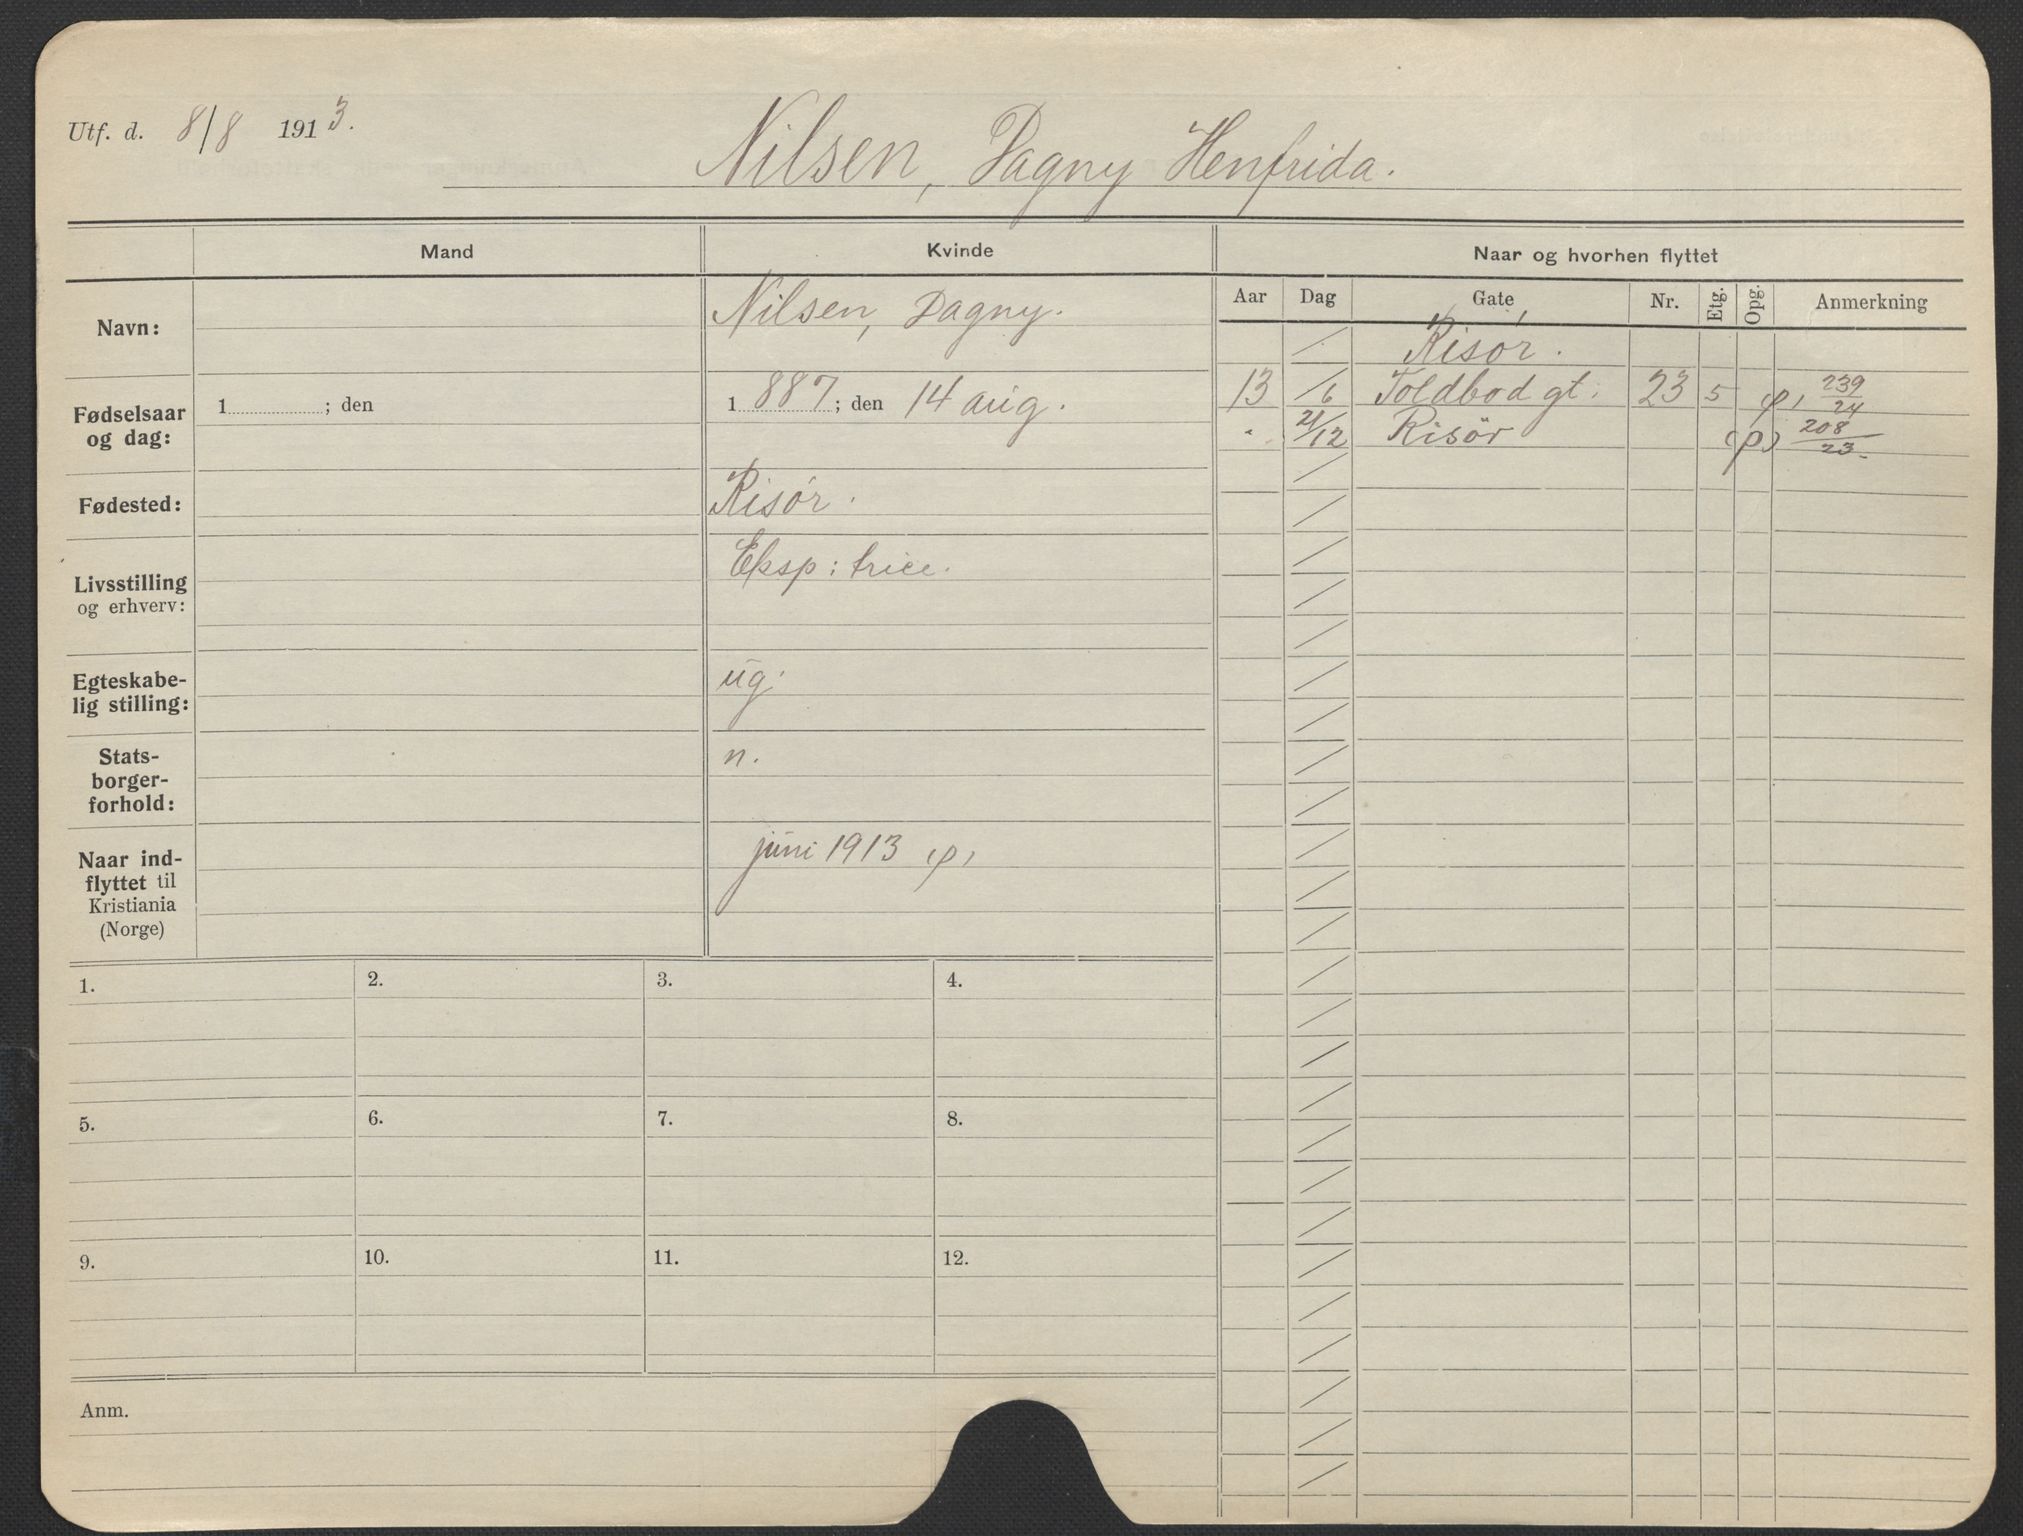 Utf. d. 8/8 1913.
Nilsen, Dagny Henfrida.
Mand
Kvinde
Naar og hvorhen flyttet
Navn:
Nilsen, Dagny.
Fødselsaar og dag:
1 ; den
1887; den 14 aug.
Fødested:
Risør.
Livsstilling og erhverv:
Eksp: trice.
Egteskabe-
lig stilling:
ug.
Stats-
borger-
forhold:
n.
Naar ind-
flyttet til
Kristiania
(Norge)
juni 1913 (p)
Aar Dag Gate Nr. Etg. Opg. Anmerkning
/ Risør.
13 /6 Toldbod gt: 23 5 (p) 239/24
" 21/12 Risør (p) 208/23
1. 2. 3. 4.
5. 6. 7. 8.
9. 10. 11. 12.
Anm.